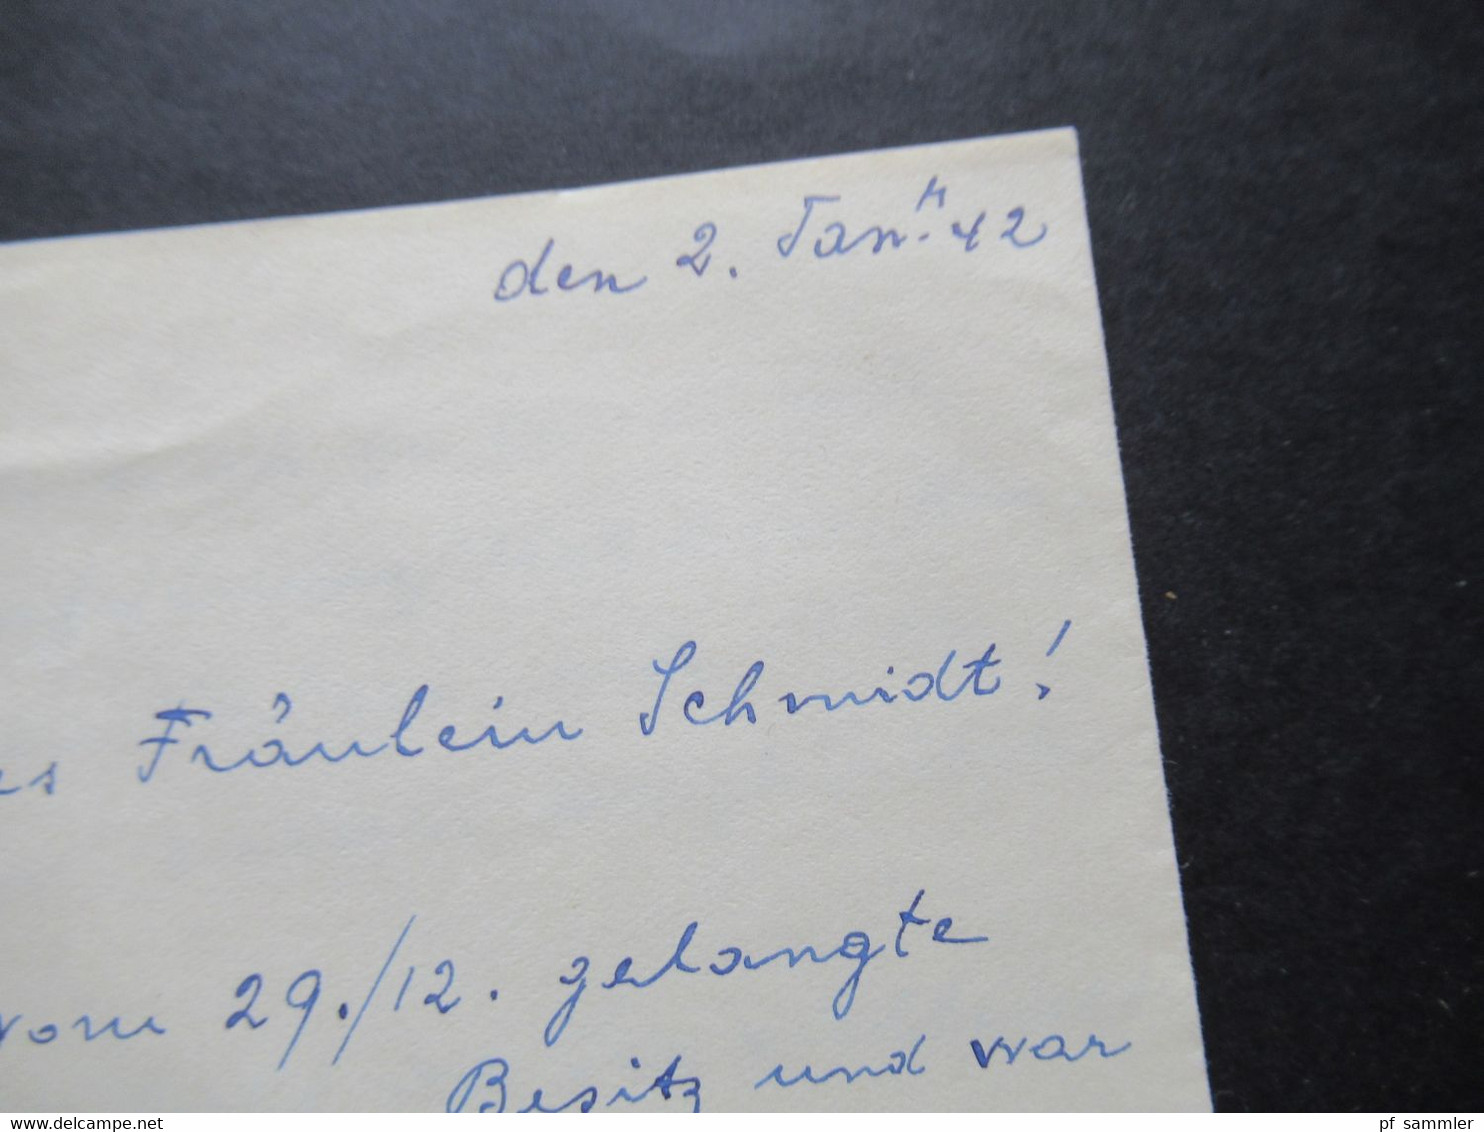 den 2. Jan. 42
es Fräulein Schmidt!
vom 29./12. gelangte
Besitz und war
www.delcampe.net
pf_sammler